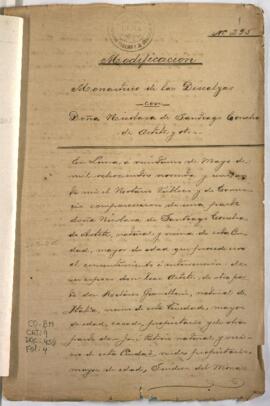 Nº 295
Modificacion
Monasterio de las Descalzas
con
Doña Nicolasa de Santiago Concha
de Astete y otro
En Lima, a veintiuno de Mayo de
mil ochocientos noventa y
Notario Público y de
comparecieron de una parte
doña Nicolasa de Santiago Concha
de Astete, natural y vecina de esta Ciu-
dad, mayor de edad, que procede con
el consentimiento y autorizacion de
su esposo don José Astete, de otra par-
te don natural de
Italia, vecino de esta Ciudad, mayor
de edad, casado, propietario y de otra
parte don José natural y veci-
no de esta Ciudad, viudo, propietario,
mayor de edad, Síndico del Monas-
CO-BM
CAJ: 9
DOC: 459
FOL: 4